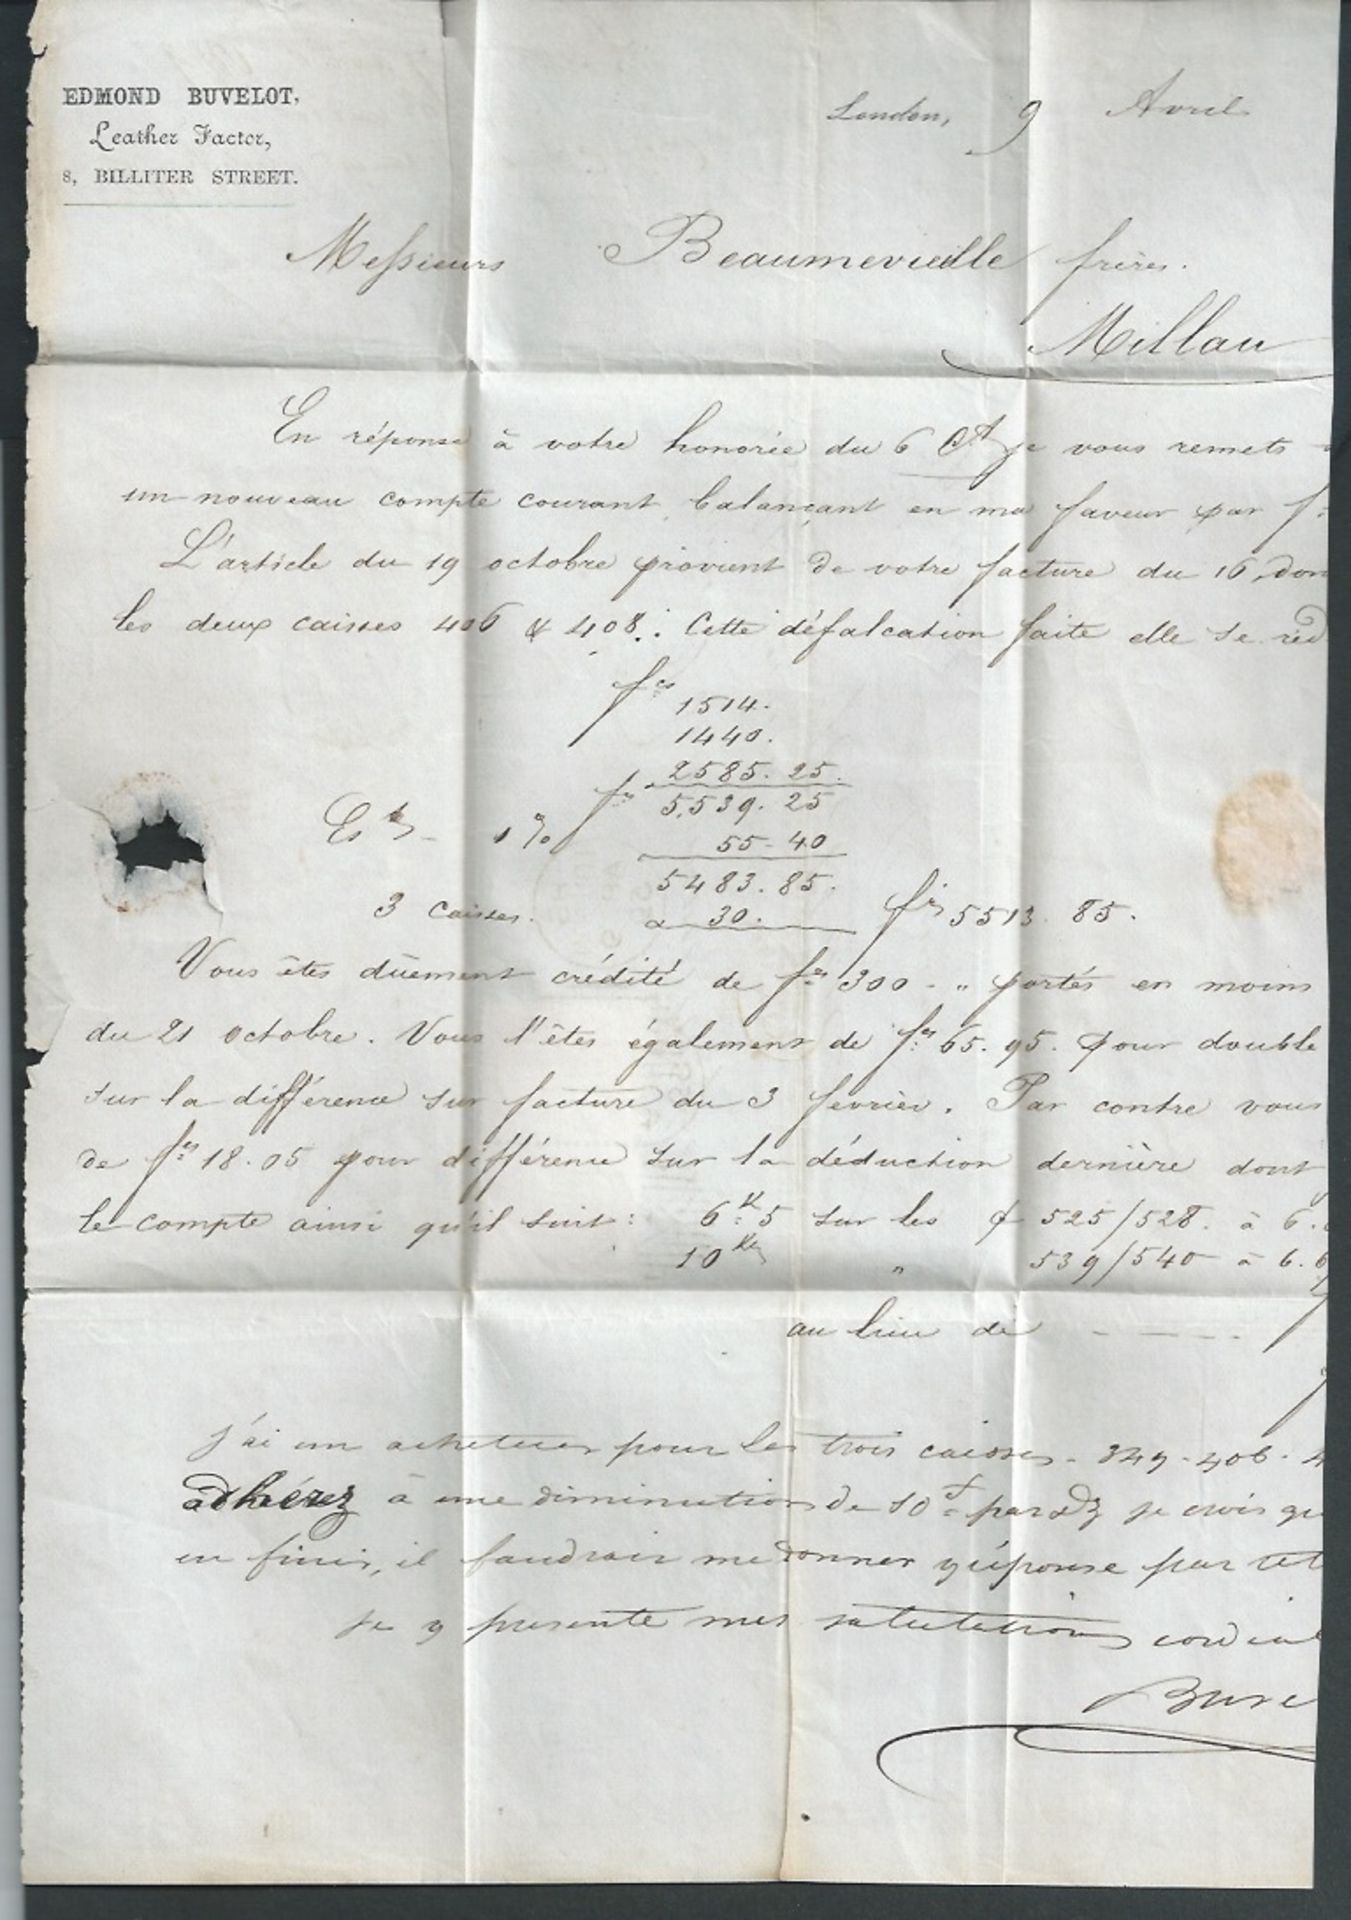 EDMOND BUVELOT,
Leather Factor,
8, BILLITER STREET.
London, 9 Avril
Messieurs Beaumevieille frères.
Millau
En réponse à votre honorée du 6 Ct je vous remets
un nouveau compte courant balançant en ma faveur par f
L'article du 19 octobre provient de votre facture du 16, don
les deux caisses 406 & 408. Cette défalcation faite elle se réd
fcs 1514.
1440.
2585.25.
fcs 5,539.25
1 % 55-40
5483.85.
3 caisses. 30. frs 5513.85.
Vous êtes dûement crédité de fcs 300 - " portés en moins
du 21 octobre. Vous l'êtes également de fcs 65.95. pour double
sur la différence sur facture du 3 février. Par contre vous
de fcs 18.05 pour différence sur la déduction dernière dont
le compte ainsi qu'il suit: 6k 5 sur les 525/528. à 6.
10 Ks " 539/540 à 6.6
au lieu de - - - -
j'ai un acheteur pour les trois caisses - 349 - 406 - 4
adhérez à une diminution de 10f par dz je crois qu
en finir, il faudrait me donner réponse par tel
je v présente mes salutations cordial
Buve